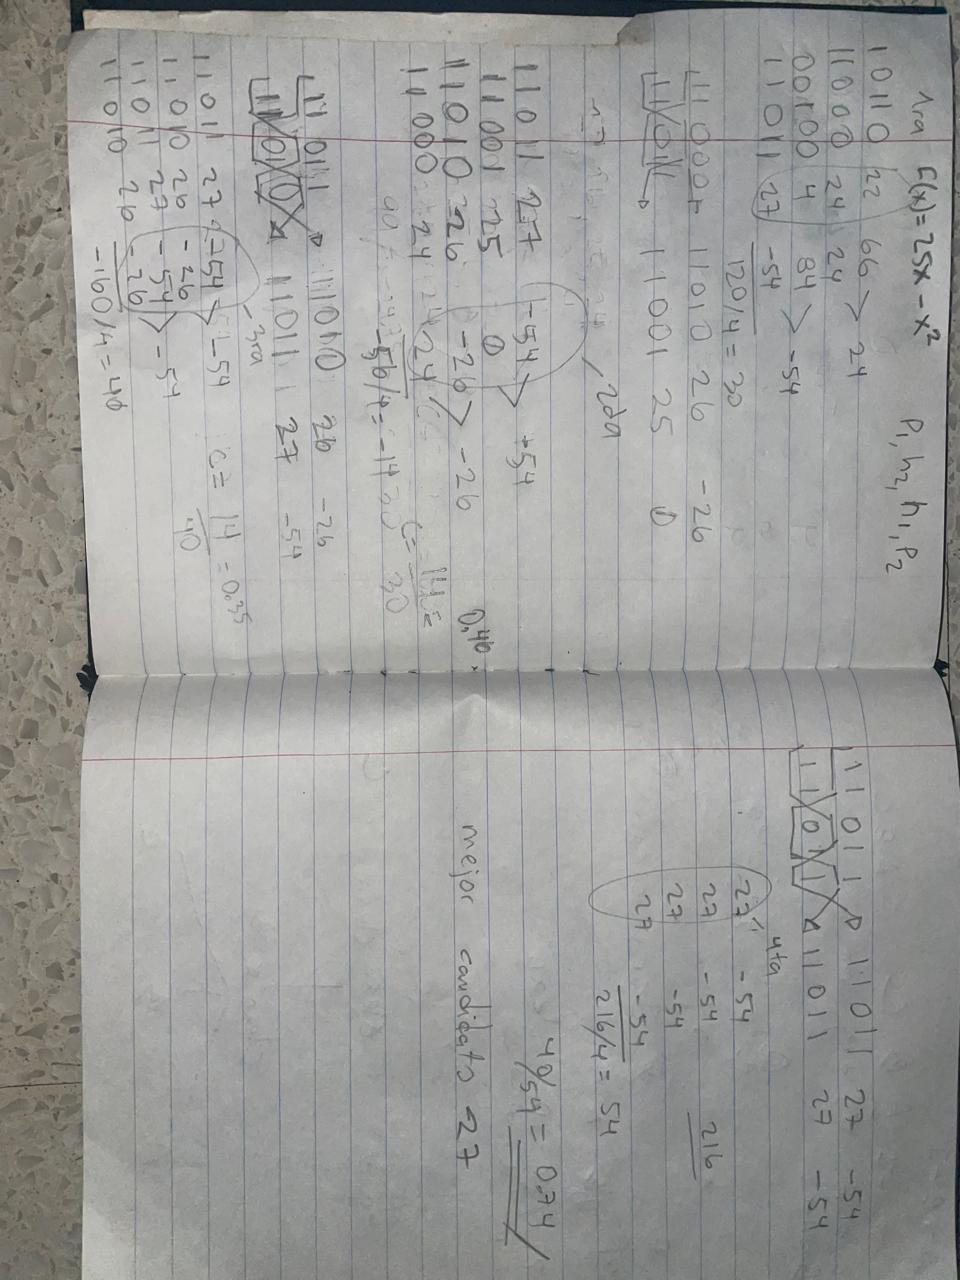 1ra F(x)=25x-x² P₁, h₂, h₁, P₂
10110 22 66 > 24
11000 24 24
00100 4 84 > -54
11011 27 -54
120/4 = 30
11000 11010 26 -26
11011 11001 25 0
2da
11011 27 -54 > +54
11001 25 0
11010 26 -26 > -26
11000 24 24
-56/4 = -14
0,46
30
11011 11010 26 -26
11010 11011 27 -54
3ra
11011 27 -54 > -54
11010 26 -26
11011 27 -54 > -54
11010 26 -26
-160/4 = 40
c = 14/40 = 0.35
11011 11011 27 -54
11011 11011 27 -54
4ta
27 -54
27 -54 216
27 -54
27 -54
216/4 = 54
40/54 = 0.74
mejor candidato 27